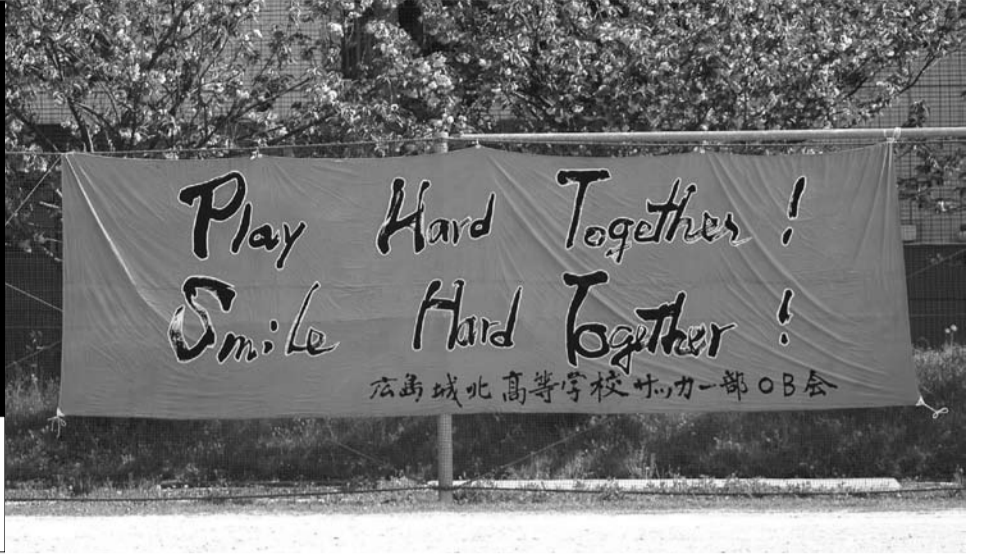 Play Hard Together!
Smile Hard Together!
広島城北高等学校サッカー部OB会